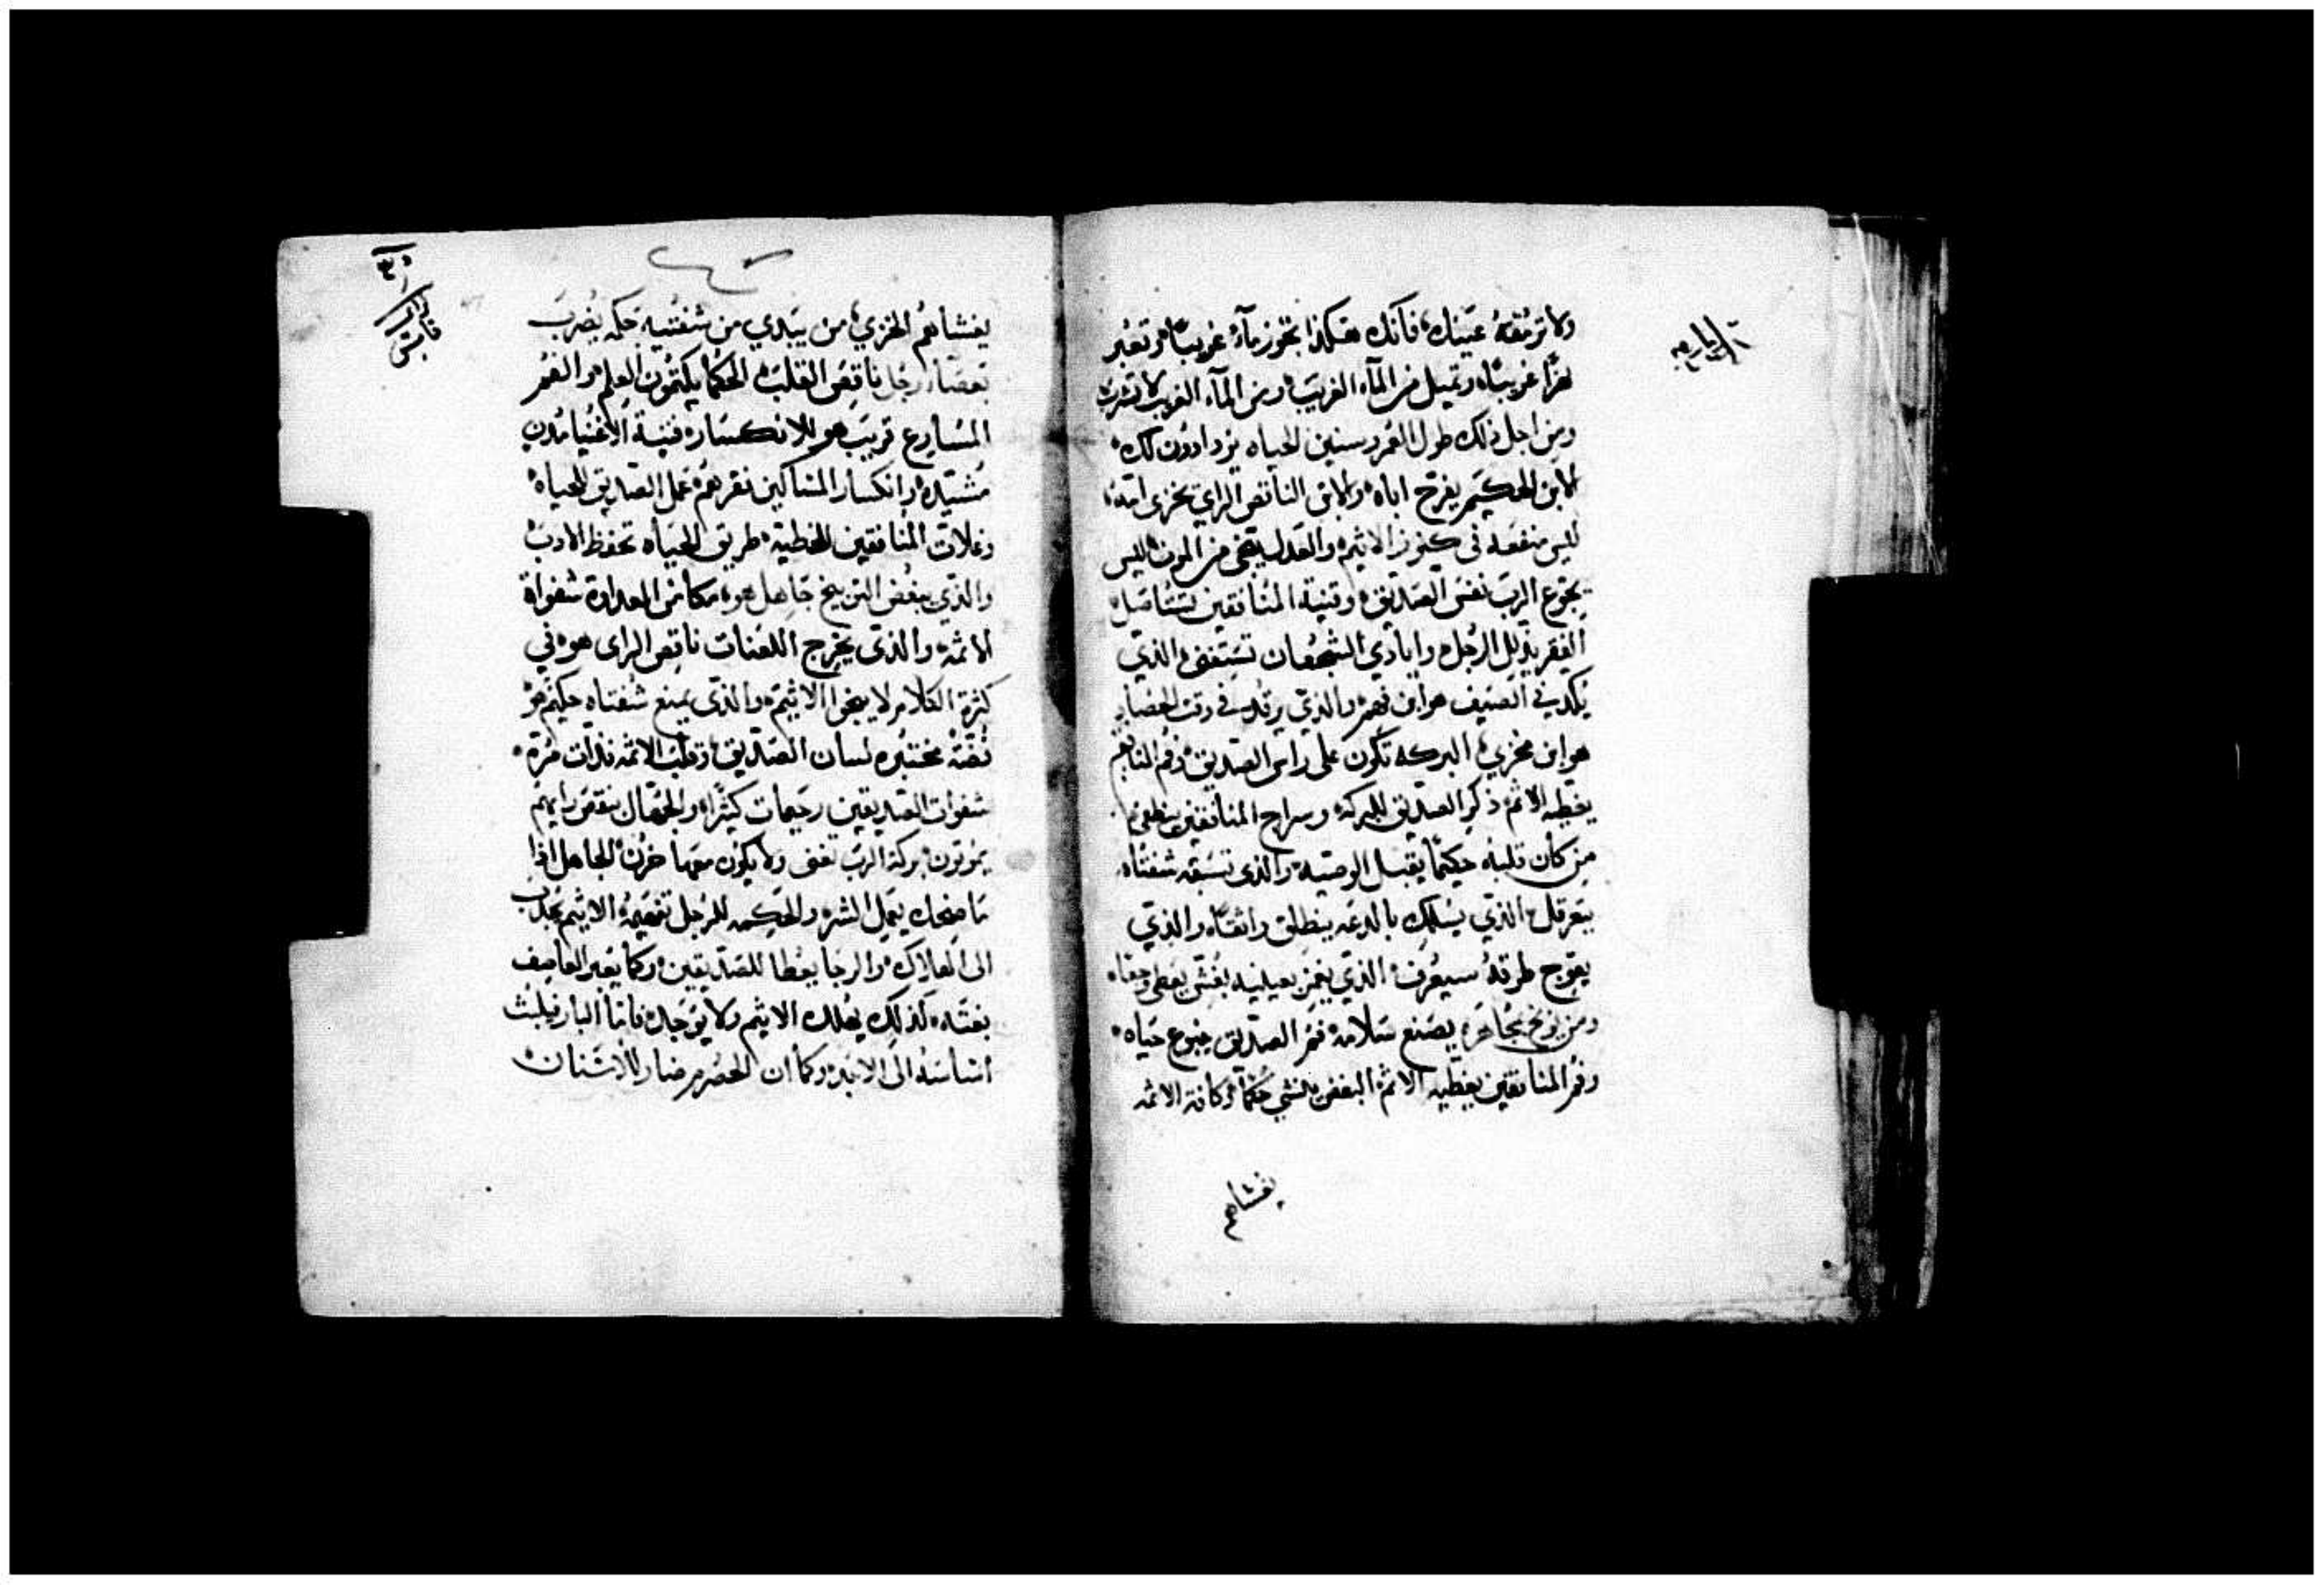 ولا ترمقه عينك، فانك هكذا تجوز مآءً غريباً، وتعبر
نهرًا غريباً، وتميل من المآء الغريب، ومن المآء الغريب لا تشرب
ومن اجل ذلك طول العمر وسنين الحياه يزدادون لك،
الابن الحكيم يفرح اباه، والابن الناقص الراي يخزي امه،
ليس منفعه في كنوز الاثيم، والعدل ينجي من الموت، ليس
يجوع الرب نفس الصديق، وقنية المنافقين تستاصل،
الفقر يذلل الرجل، وايادي الشجعان تستغني، الذي
يكد في الصيف هو ابن فهم، والذي يرقد في وقت الحصاد
هو ابن مخزي، البركه تكون على راس الصديق، وفم المنافقين
يغطيه الاثم، ذكر الصديق للبركه، وسراج المنافقين ينطفي،
من كان قلبه حكيماً يقبل الوصيه، والذي تسبقه شفتاه
يتعرقل، الذي يسلك بالدعه ينطلق واثقاً، والذي
يعوج طرقهُ سيعرف، الذي يغمز بعينيه بغش يعطي وجعاً،
ومن يوبخ مجاهرة يصنع سلامه، فم الصديق ينبوع حياه،
وفم المنافقين يغطيه الاثم، البغض ينشي حكماً، وكافة الاثمه
يغشاهم
يغشاهم الخزي، من يبدي من شفتيه حكمه يضرب
بعصاه رجل ناقص القلب، الحكما يكتمون العلم، والفم
المسارع قريب هو للانكسار، قنية الاغنيا مدن
مشيده، وانكسار المساكين فقرهم، عمل الصديق للحياه،
وغلات المنافقين للخطيه، طريق الحياه تحفظ الادب
والذي يبغض التوبيخ جاهل هو، مكامن العداوة شفواه
الاثمه، والذي يخرج اللعنات ناقص الراى هو، في
كثرة الكلام لا ينجوا الاثيم، والذى يمنع شفتاه حكيم هو
فضّة مختبره لسان الصديق، وقلب الاثمه فذات مرة،
شفوات الصديقين رحيمات كثيراً، والجهال بنقص رايهم
يموتون، بركة الرب تغني ولا يكون معها حزن، الجاهل اذا
ما ضحك يعمل الشر، والحكمه للرجل تفهمهُ، الاثيم يجذب
الى الهلاك، والرجا يعطا للصديقين، وكما يعبر العاصف
بغتة، كذلك يهلك الاثيم ولا يوجد، فاما البار فيلبث
اساسهُ الى الابد، وكما ان الحصرم ضار للاسنان